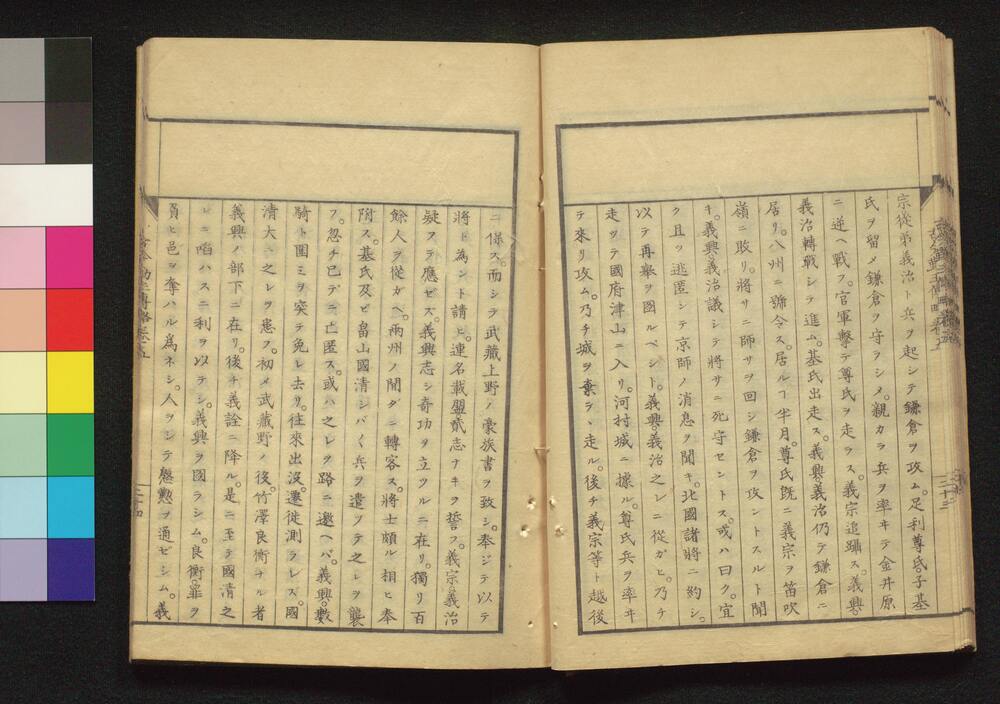 宗從弟義治ト兵ヲ起シテ鎌倉ヲ攻ム。足利尊氏。子基
氏ヲ留メ鎌倉ヲ守ラシメ。親カラ兵ヲ率ヰテ金井原
ニ逆ヘ戰フ。官軍撃テ尊氏ヲ走ラス。義宗追躡ス。義興。
義治轉戰シテ進ム。基氏出走ス。義興。義治仍テ鎌倉ニ
居リ。八州ニ號令ス。居ル丁半月。尊氏既ニ義宗ヲ笛吹
嶺ニ敗リ。將サニ師ヲ回シ鎌倉ヲ攻ントスルト聞
キ。義興。義治議シテ將サニ死守セントス。或ハ曰ク。宜
ク且ツ逃匿シテ京師ノ消息ヲ聞キ。北國諸將ニ約シ。
以テ再擧ヲ圖ルベシト。義興。義治之レニ從ガヒ。乃チ
走ツテ國府津山ニ入リ。河村城ニ據ル。尊氏兵ヲ率ヰ
テ來リ攻ム。乃チ城ヲ棄テヽ走ル。後チ義宗等ト越後
ニ保ス。而シテ武藏上野ノ豪族書ヲ致シ。奉ジテ以テ
將ト為ント請ヒ。連名載盟。貳志ナキヲ誓フ。義宗。義治
疑フテ應ゼス。義興志シ奇功ヲ立ツルニ在リ。獨リ百
餘人ヲ從ガヘ。兩州ノ間ダニ轉客ス。將士頗ル相ヒ奉
附ス。基氏及ビ畠山國清シバ〱兵ヲ遣ツテ之レヲ襲
フ。忽チ已デニ亡匿ス。或ハ之レヲ路ニ邀ヘバ。義興。數
騎ト圍ミヲ突テ免レ去リ。往來出沒。遷徙測ラレス。國
清大ニ之レヲ患フ。初メ武藏野ノ後。竹澤良衡ナル者
義興ノ部下ニ在リ。後チ義詮ニ降ル。是ニ至テ國清之
レニ啗ハスニ利ヲ以テシ。義興ヲ圖ラシム。良衡。罪ヲ
負ヒ邑ヲ奪ハル爲ネシ。人ヲシテ慇懃ヲ通ゼシム。義